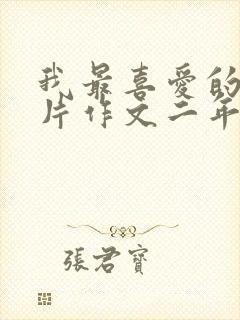 我最喜愛的
片作文二年
張君寶